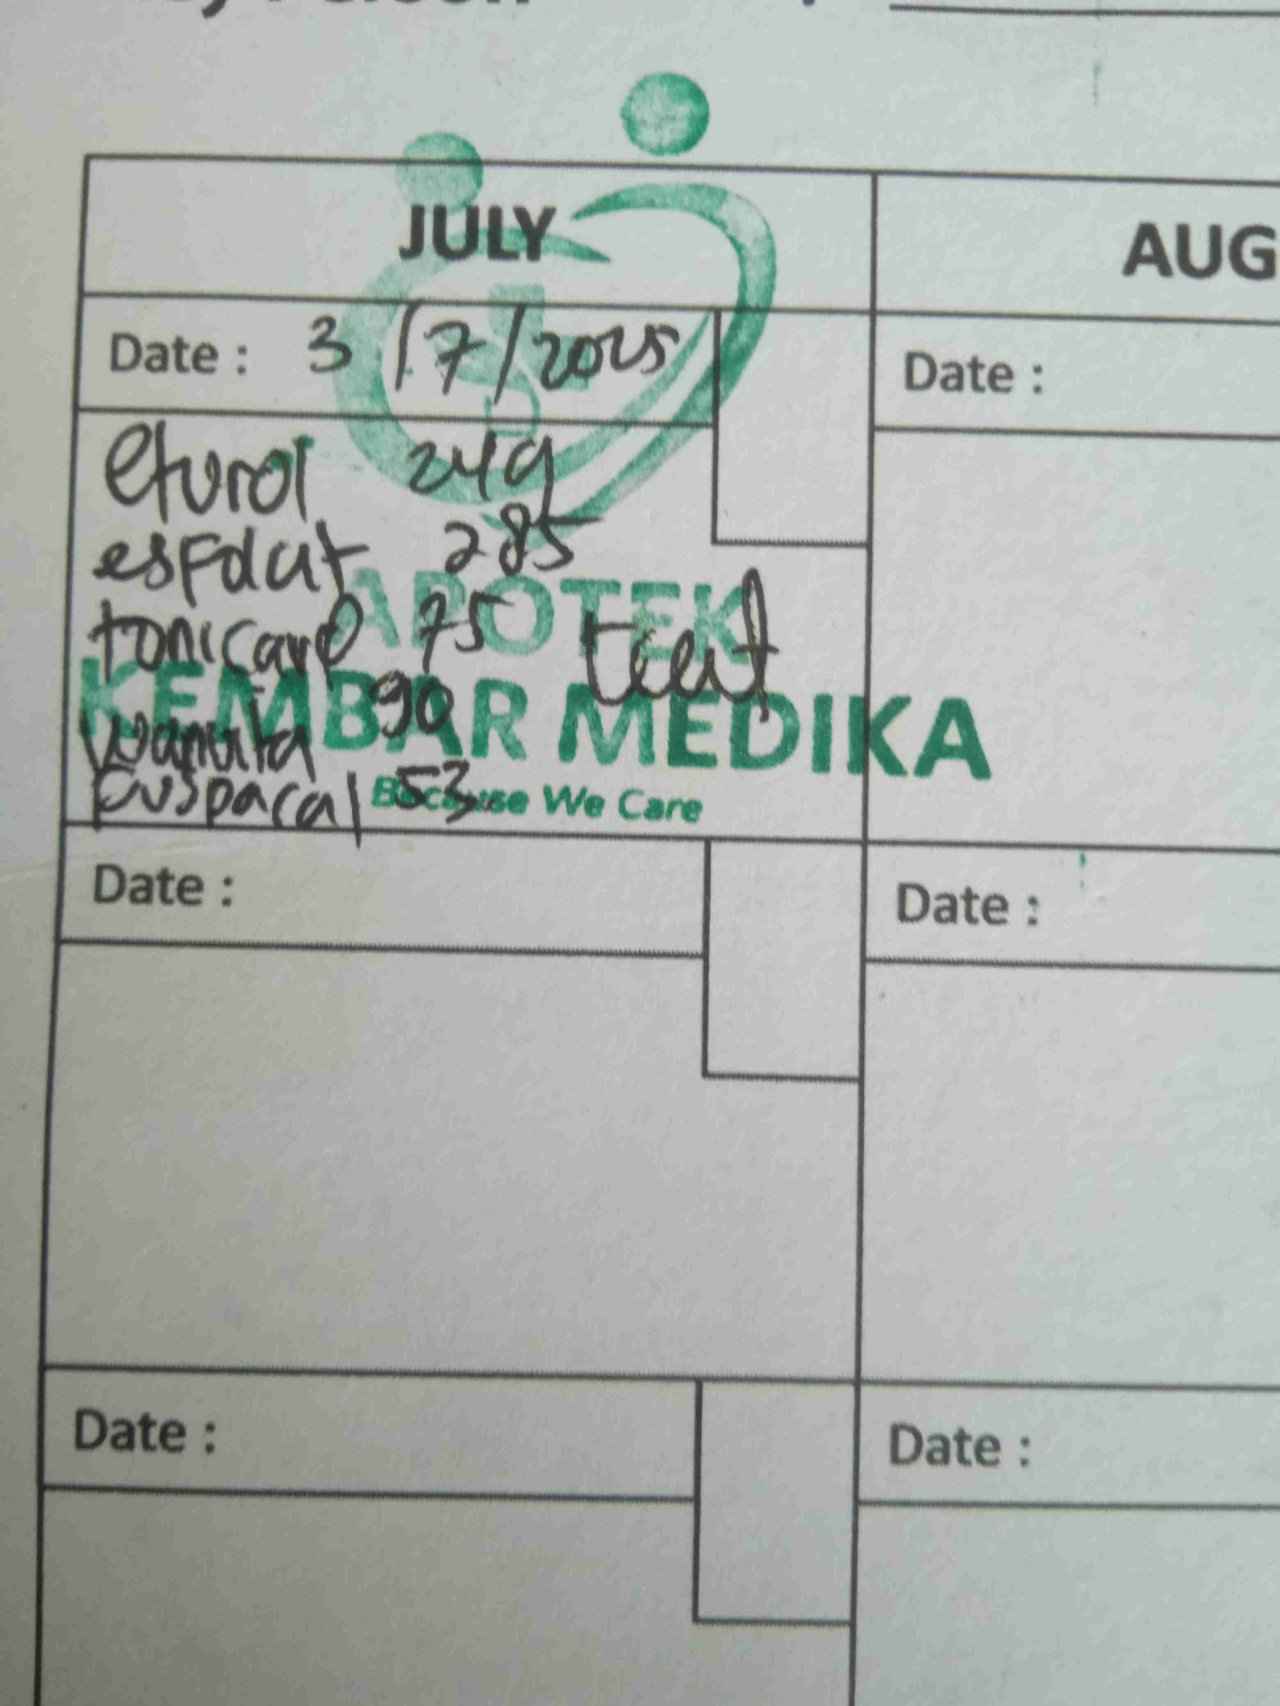 JULY
AUG
Date : 3 / 7 / 2025
Date :
eturol 249
esfolat 285
tonicard 75
wanita 90
puspacal 53
APOTEK
KEMBAR MEDIKA
Because We Care
Date :
Date :
Date :
Date :